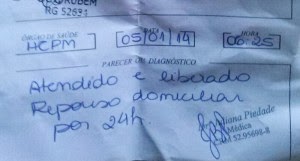 RUBEM
RG 52693
ÓRGÃO DE SAÚDE
HORA
HCPM
05/01/14
06:25
PARECER OU DIAGNÓSTICO
Atendido e liberado
Repouso domiciliar
por 24h.
Piedade
Médica
52.95698-8